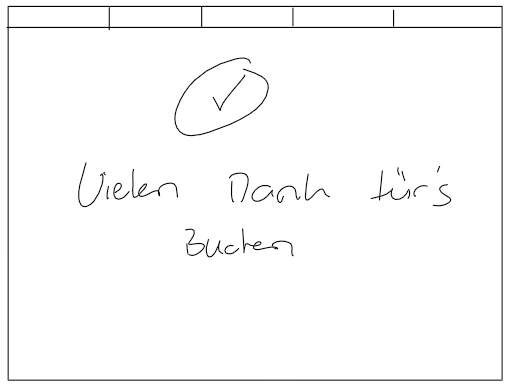 Vielen Dank für's
Buchen